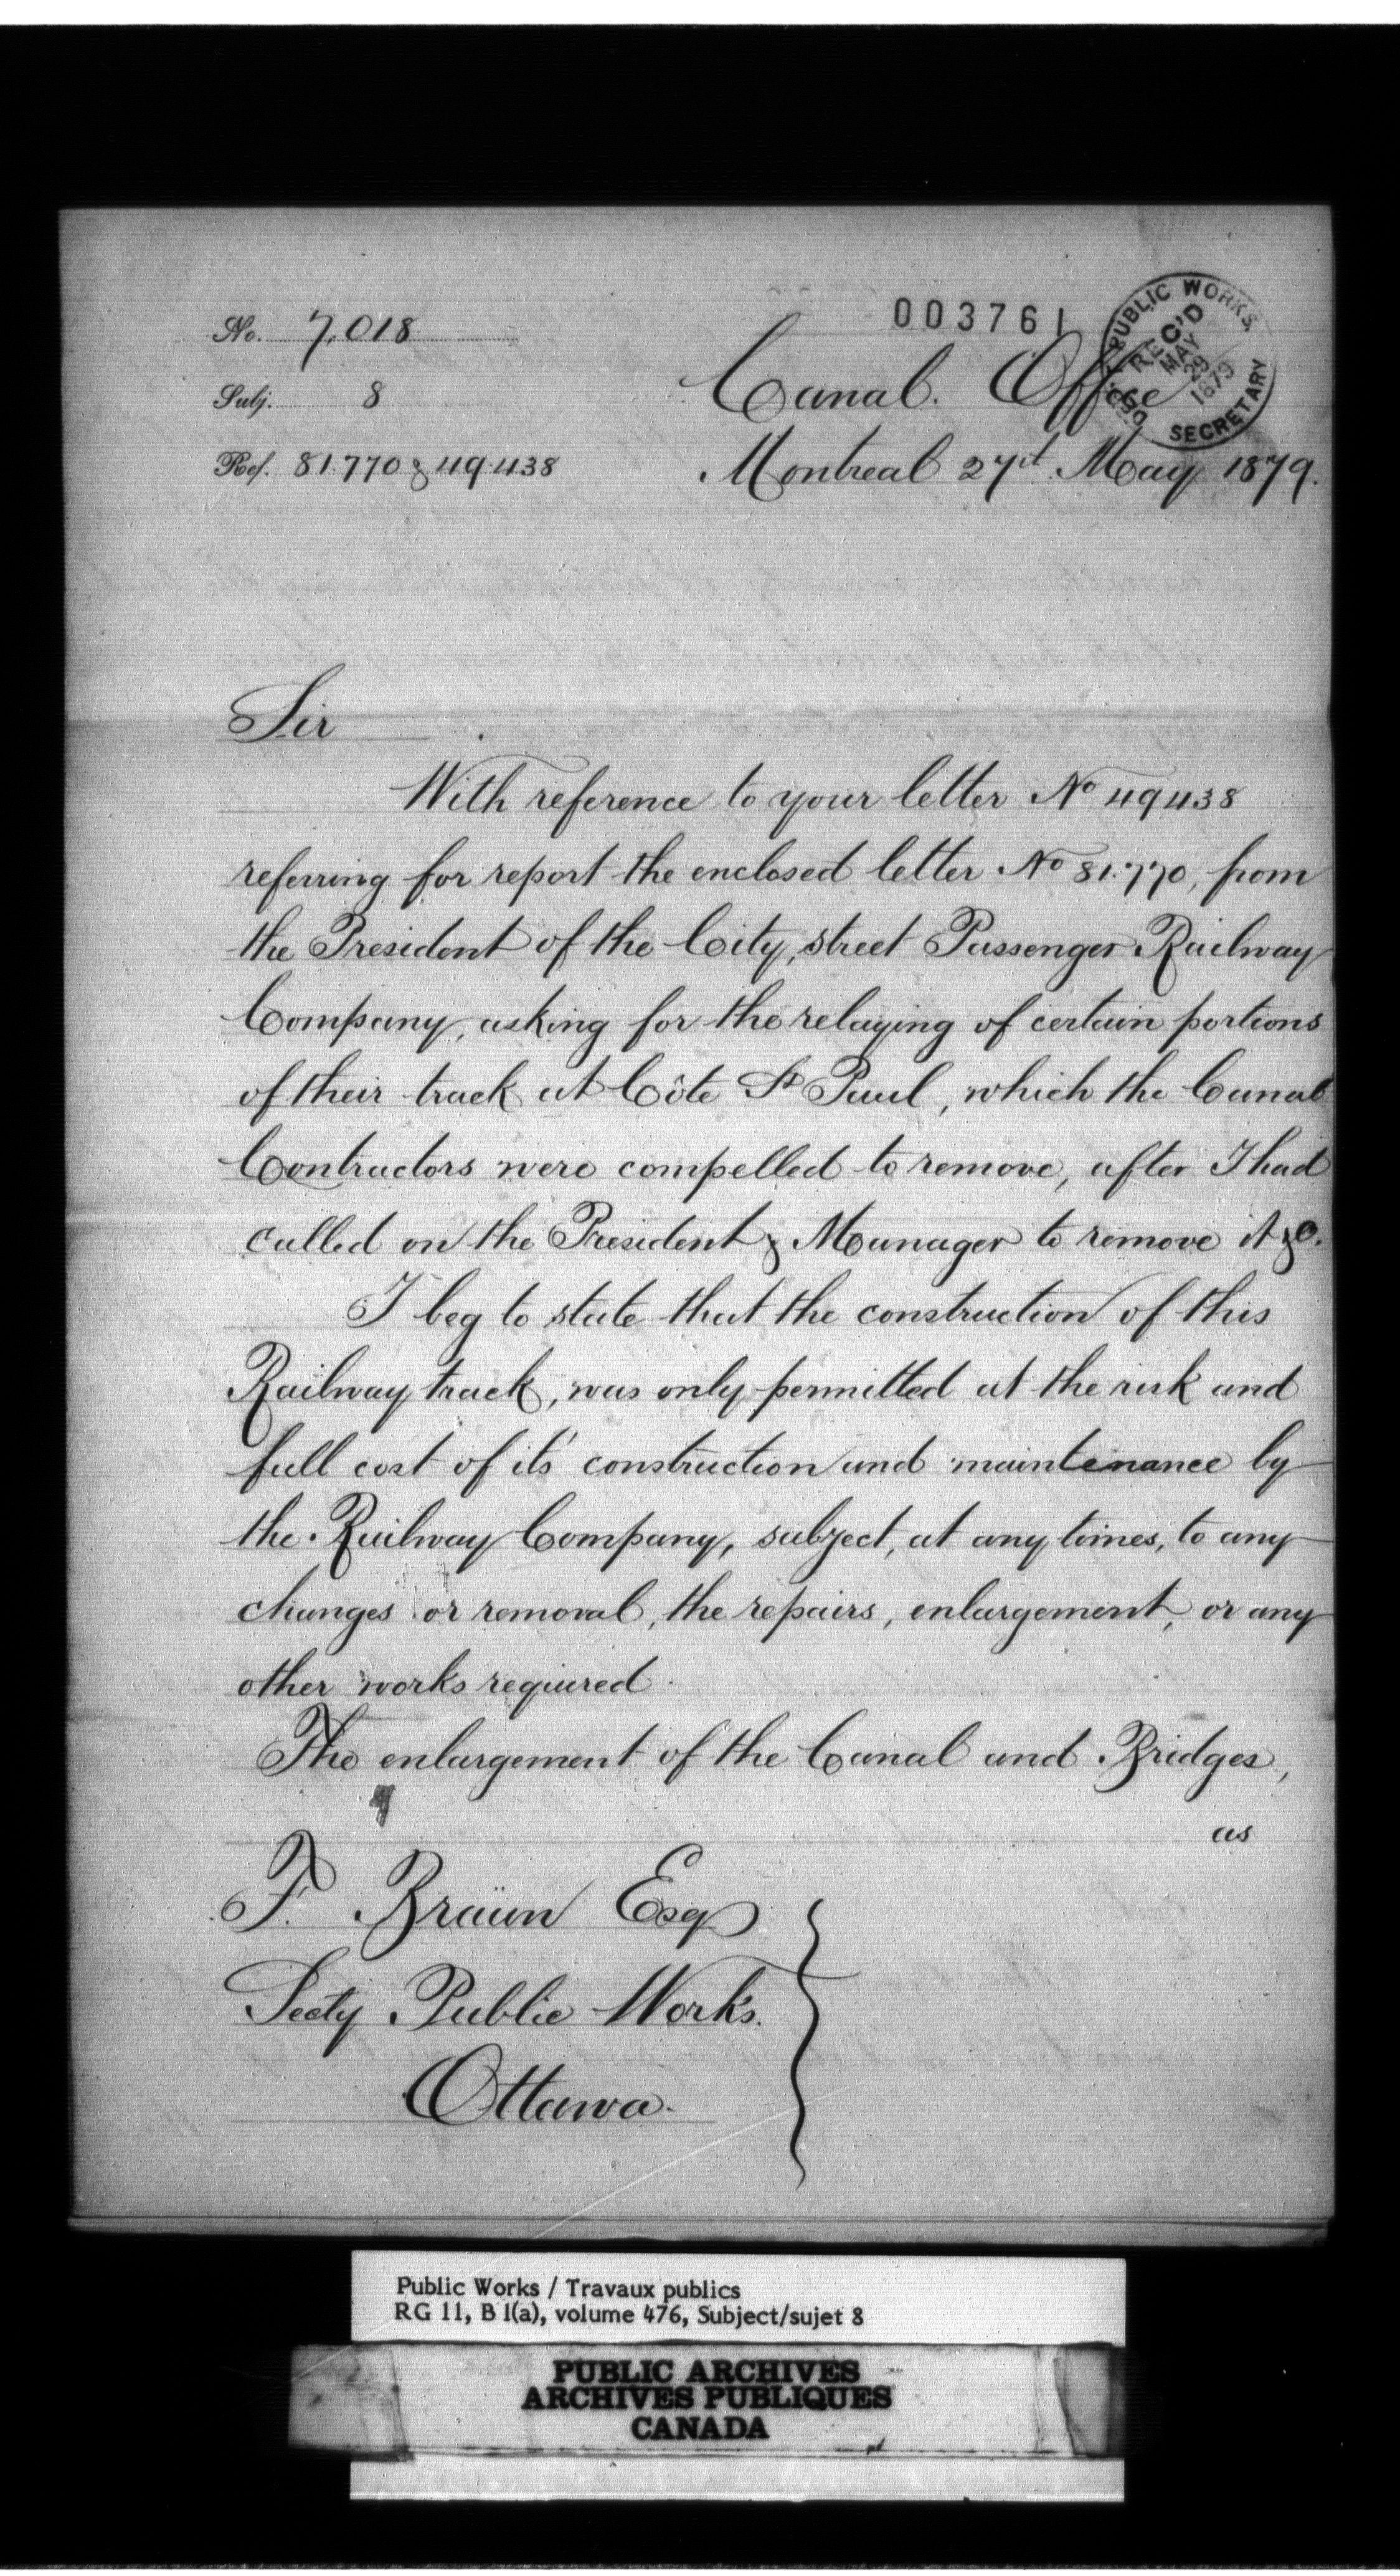 003761
DEPT. PUBLIC WORKS.
REC'D
MAY
29
1879
SECRETARY
No. 7,018
Subj. 8
Ref. 81.770 & 49.438
Canal. Office
Montreal 27st May 1879.
Sir
With reference to your letter No 49438
referring for report the enclosed letter No 81.770, from
the President of the City, street Passenger Railway
Company, asking for the relaying of certain portions
of their track at Côte St Paul, which the Canal
Contractors were compelled to remove, after I had
called on the President & Manager to remove it &c.
I beg to state that the construction of this
Railway track, was only permitted at the risk and
full cost of it's construction and maintenance by
the Railway Company, subject, at any times, to any
changes or removal, the repairs, enlargement, or any
other works required.
The enlargement of the Canal and Bridges,
as
F. Braün Esq
Secty Public Works.
Ottawa.
Public Works / Travaux publics
RG 11, B 1(a), volume 476, Subject/sujet 8
PUBLIC ARCHIVES
ARCHIVES PUBLIQUES
CANADA